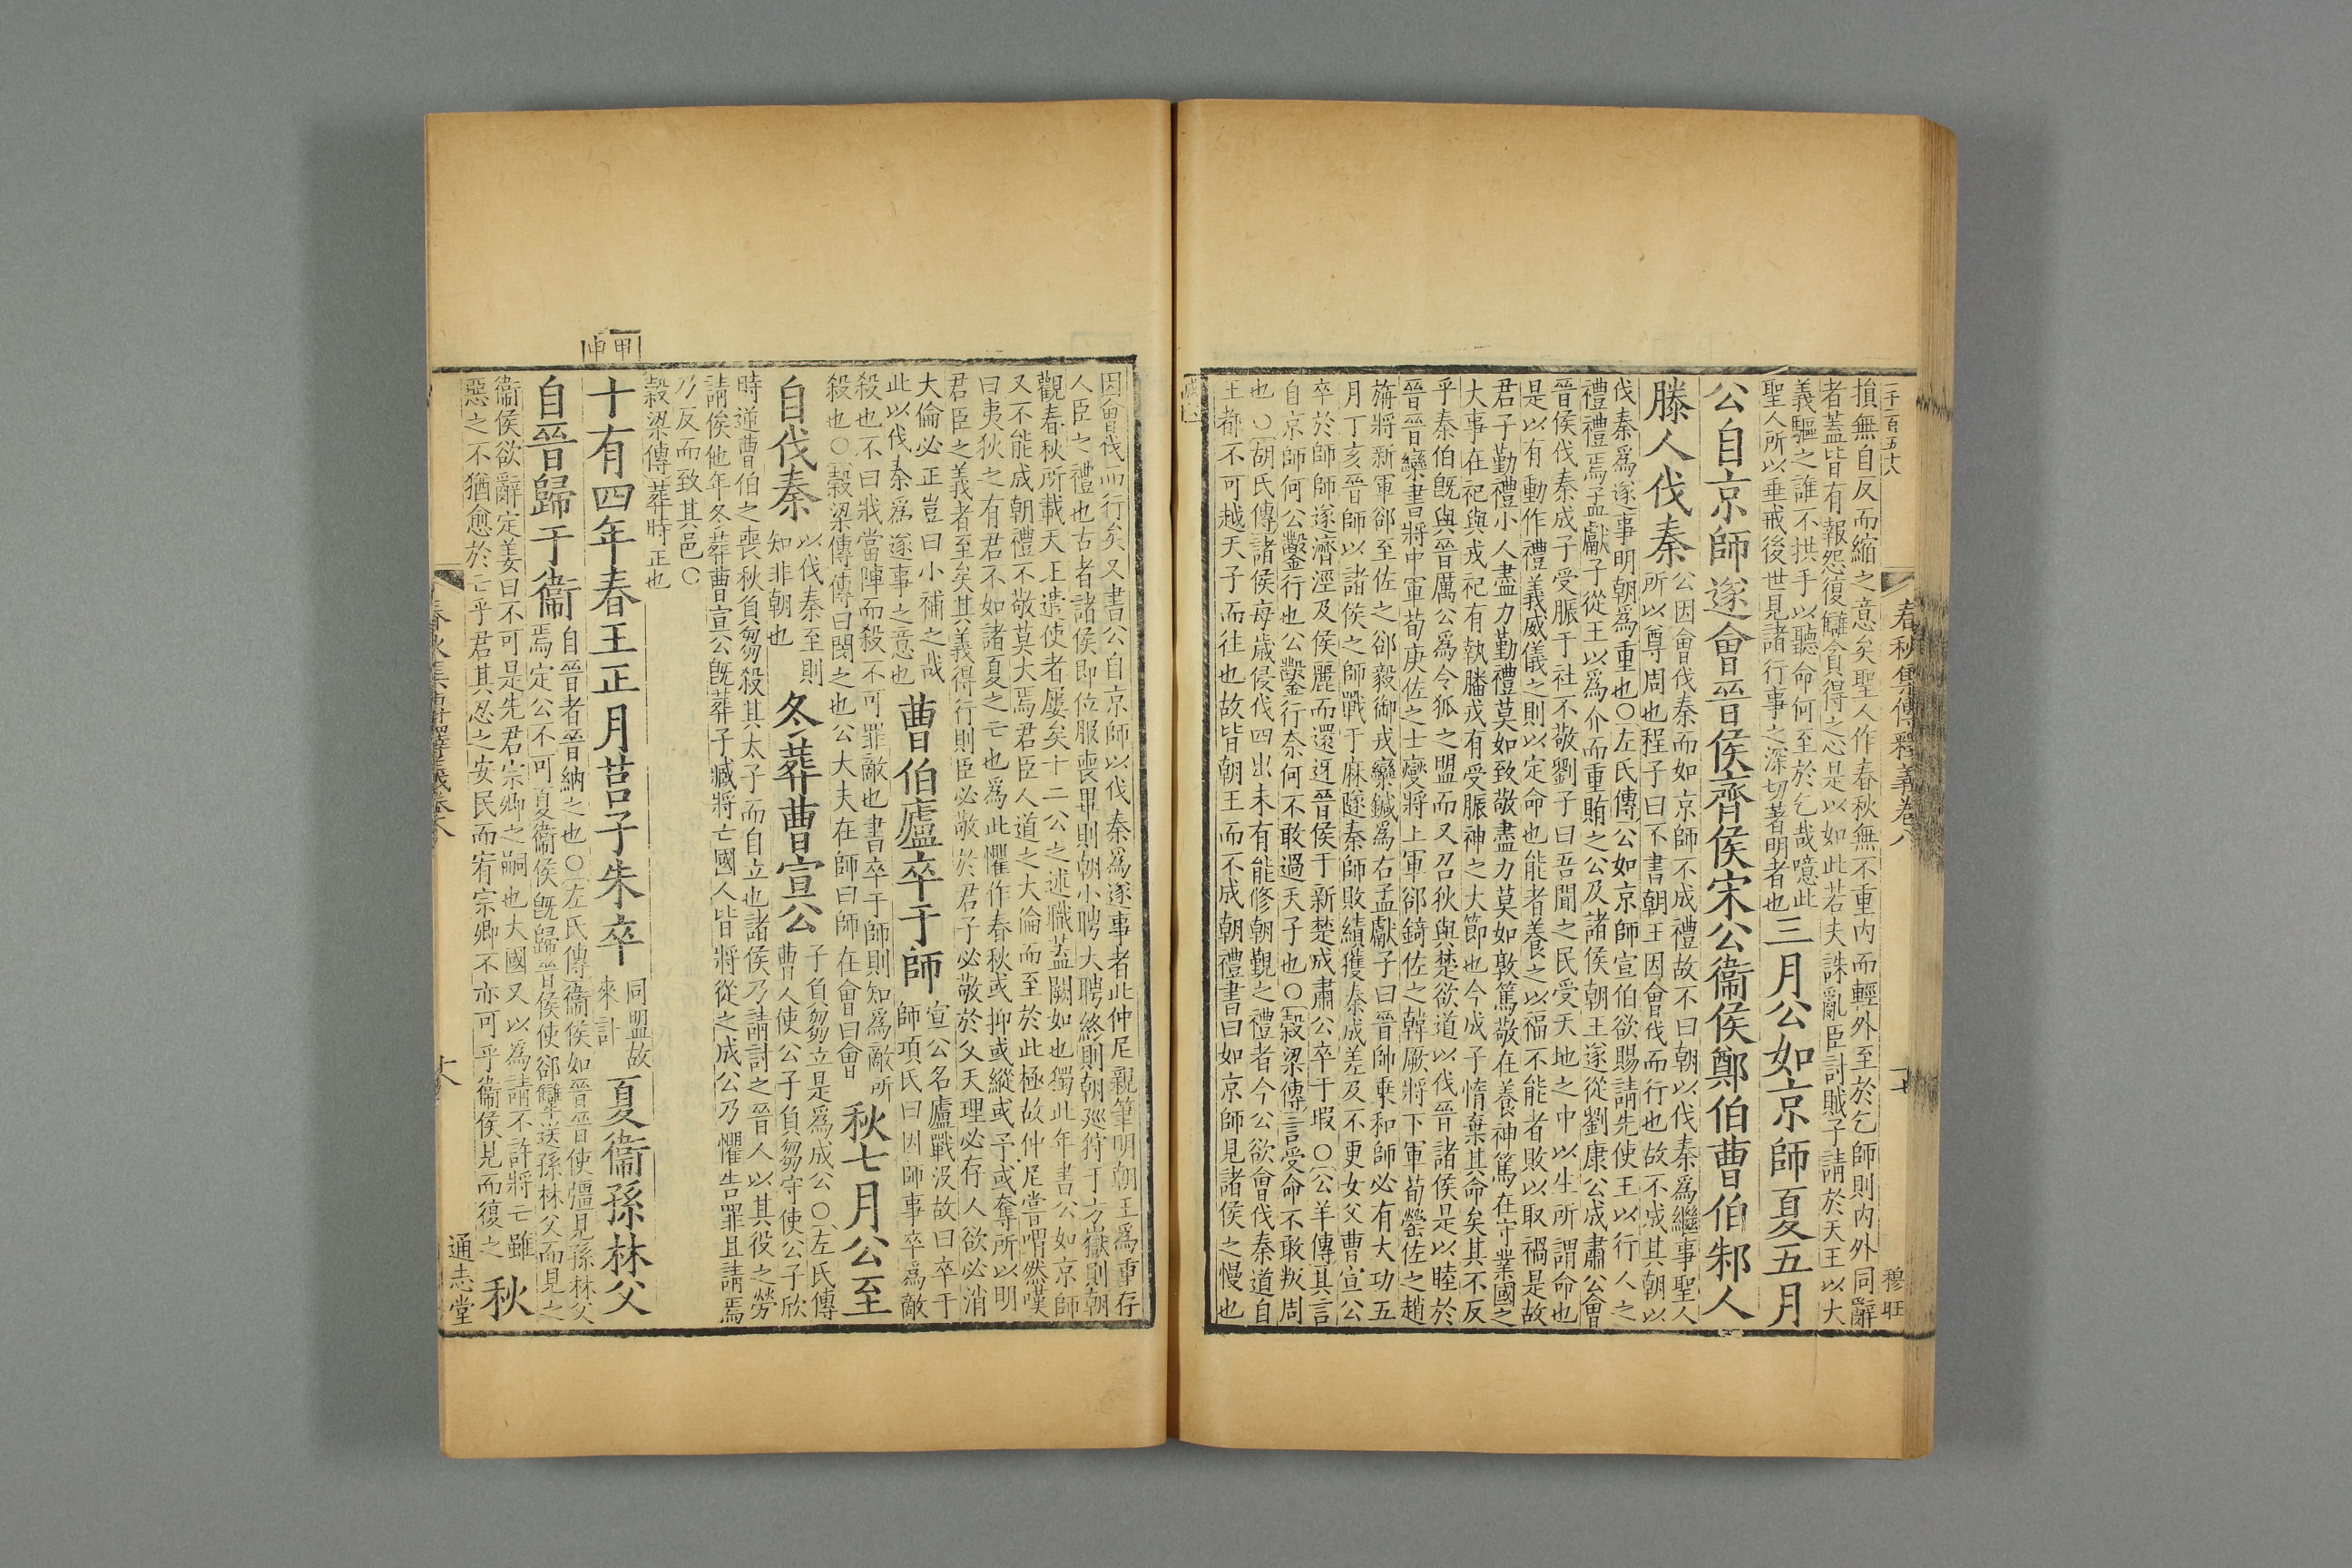 二千一百五十八
春秋集傳釋義卷八
十七
穆旺
損無自反而縮之意矣聖人作春秋無不重内而輕外至於乞師則内外同辭
者蓋皆有報怨復讎貪得之心是以如此若夫誅亂臣討賊子請於天王以大
義驅之誰不拱手以聽命何至於乞哉噫此
聖人所以垂戒後世見諸行事之深切著明者也
三月公如京師夏五月
公自京師遂會晉侯齊侯宋公衞侯鄭伯曹伯邾人
滕人伐秦
公因會伐秦而如京師不成禮故不曰朝以伐秦爲繼事聖人
所以尊周也程子曰不書朝王因會伐而行也故不成其朝以
伐秦爲遂事明朝爲重也○左氏傳公如京師宣伯欲賜請先使王以行人之
禮禮焉孟獻子從王以爲介而重賄之公及諸侯朝王遂從劉康公成肅公會
晉侯伐秦成子受脤于社不敬劉子曰吾聞之民受天地之中以生所謂命也
是以有動作禮義威儀之則以定命也能者養之以福不能者敗以取禍是故
君子勤禮小人盡力勤禮莫如致敬盡力莫如敦篤敬在養神篤在守業國之
大事在祀與戎祀有執膰戎有受脤神之大節也今成子惰棄其命矣其不反
乎秦伯旣與晉厲公爲令狐之盟而又召狄與楚欲道以伐晉諸侯是以睦於
晉晉欒書將中軍荀庚佐之士燮將上軍郤錡佐之韓厥將下軍荀罃佐之趙
旃將新軍郤至佐之郤毅御戎欒鍼爲右孟獻子曰晉帥乗和師必有大功五
月丁亥晉師以諸侯之師戰于麻隧秦師敗績獲秦成差及不更女父曹宣公
卒於師師遂濟涇及侯麗而還迓晉侯于新楚成肅公卒于瑕○公羊傳其言
自京師何公鑿行也公鑿行奈何不敢過天子也○穀梁傳言受命不敢叛周
也○胡氏傳諸侯每歲侵伐四出未有能修朝覲之禮者今公欲會伐秦道自
王都不可越天子而往也故皆朝王而不成朝禮書曰如京師見諸侯之慢也
成公
因會伐而行矣又書公自京師以伐秦爲遂事者此仲尼親筆明朝王爲重存
人臣之禮也古者諸侯即位服喪畢則朝小聘大聘終則朝廵狩于方嶽則朝
觀春秋所載天王遣使者屢矣十二公之述職蓋闕如也獨此年書公如京師
又不能成朝禮不敬莫大焉君臣人道之大倫而至於此極故仲尼嘗喟然嘆
曰夷狄之有君不如諸夏之亡也爲此懼作春秋或抑或縱或予或奪所以明
君臣之義者至矣其義得行則臣必敬於君子必敬於父天理必存人欲必消
大倫必正豈曰小補之哉
此以伐秦爲遂事之意也
曹伯廬卒于師
宣公名廬戰没故曰卒于
師項氏曰因師事卒爲敵
殺也不曰戕當陣而殺不可罪敵也書卒于師則知爲敵所
殺也○穀梁傳傳曰閔之也公大夫在師曰師在會曰會
秋七月公至
自伐秦
以伐秦至則
知非朝也
冬葬曹宣公
子負芻立是爲成公○左氏傳
曹人使公子負芻守使公子欣
時逆曹伯之喪秋負芻殺其太子而自立也諸侯乃請討之晉人以其役之勞
請俟他年冬葬曹宣公旣葬子臧將亡國人皆將從之成公乃懼告罪且請焉
乃反而致其邑○
穀梁傳葬時正也
甲申
十有四年春王正月莒子朱卒
同盟故
來訃
夏衞孫林父
自晉歸于衞
自晉者晉納之也○左氏傳衞侯如晉晉使彊見孫林父
焉定公不可夏衞侯旣歸晉侯使郤犨送孫林父而見之
衞侯欲辭定姜曰不可是先君宗卿之嗣也大國又以爲請不許將亡雖
惡之不猶愈於亡乎君其忍之安民而宥宗卿不亦可乎衞侯見而復之
秋
春秋集傳釋義卷八
十八
通志堂